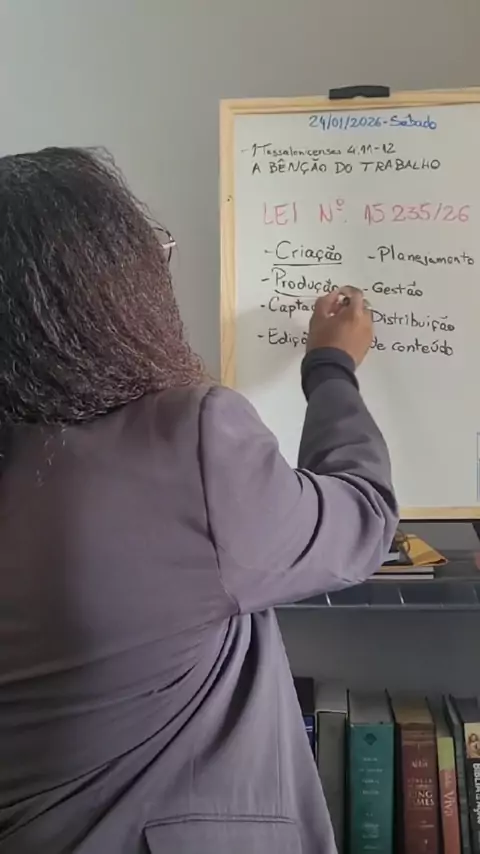 24/01/2026-Sábado
-1 Tessalonicenses 4.11-12
A BÊNÇÃO DO TRABALHO
LEI Nº. 15235/26
-Criação -Planejamento
-Produção -Gestão
-Capta Distribuição
-Ediçã de conteúdo
KING
JAMES
Viva